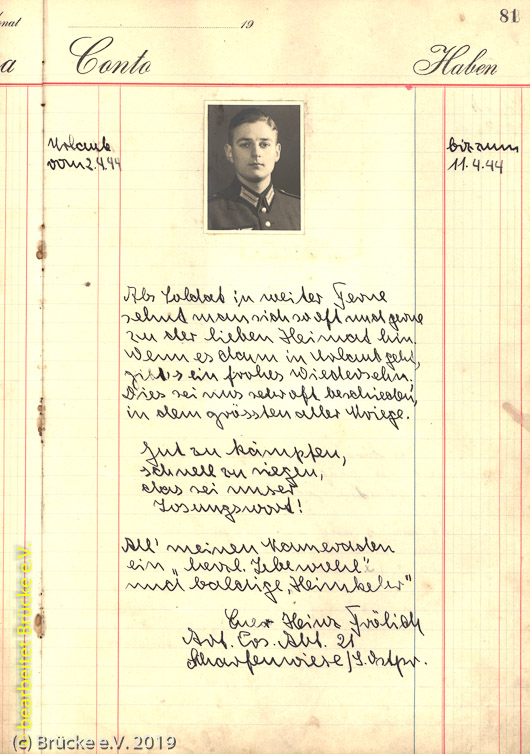 19
81
Conto
Haben
Urlaub
vom 2.4.44
bis zum
11.4.44
Als Soldat in weiter Ferne
sehnt man sich so oft und gerne
zu der lieben Heimat hin.
Wenn es dann in Urlaub geht,
gibt's ein frohes Wiedersehn!
Dies sei uns sehr oft beschieden,
in dem grössten aller Kriege.
Gut zu kämpfen,
schnell zu siegen,
das sei unser
Losungswort!
All' meinen Kameraden
ein "herzl. Lebewohl"
und baldige "Heimkehr"
Euer Heinz Frölich
Art. Ers. Abt. 21
Scharfenwiese/S. Ostpr.
bearbeitet Brücke e.V.
(c) Brücke e.V. 2019